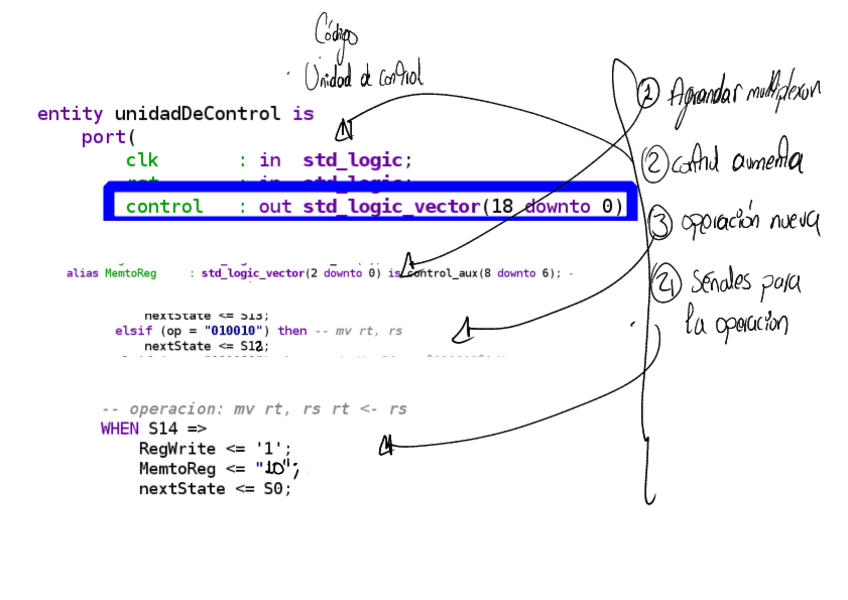 Código
Unidad de control
entity unidadDeControl is
port(
clk : in std_logic;
control : out std_logic_vector(18 downto 0)
alias MemtoReg : std_logic_vector(2 downto 0) is control_aux(8 downto 6); -
nextState <= S13;
elsif (op = "010010") then -- mv rt, rs
nextState <= S12;
-- operacion: mv rt, rs rt <- rs
WHEN S14 =>
RegWrite <= '1';
MemtoReg <= "10";
nextState <= S0;
1 Agrandar multiplexon
2 control aumenta
3 operación nueva
Señales para
la operacion